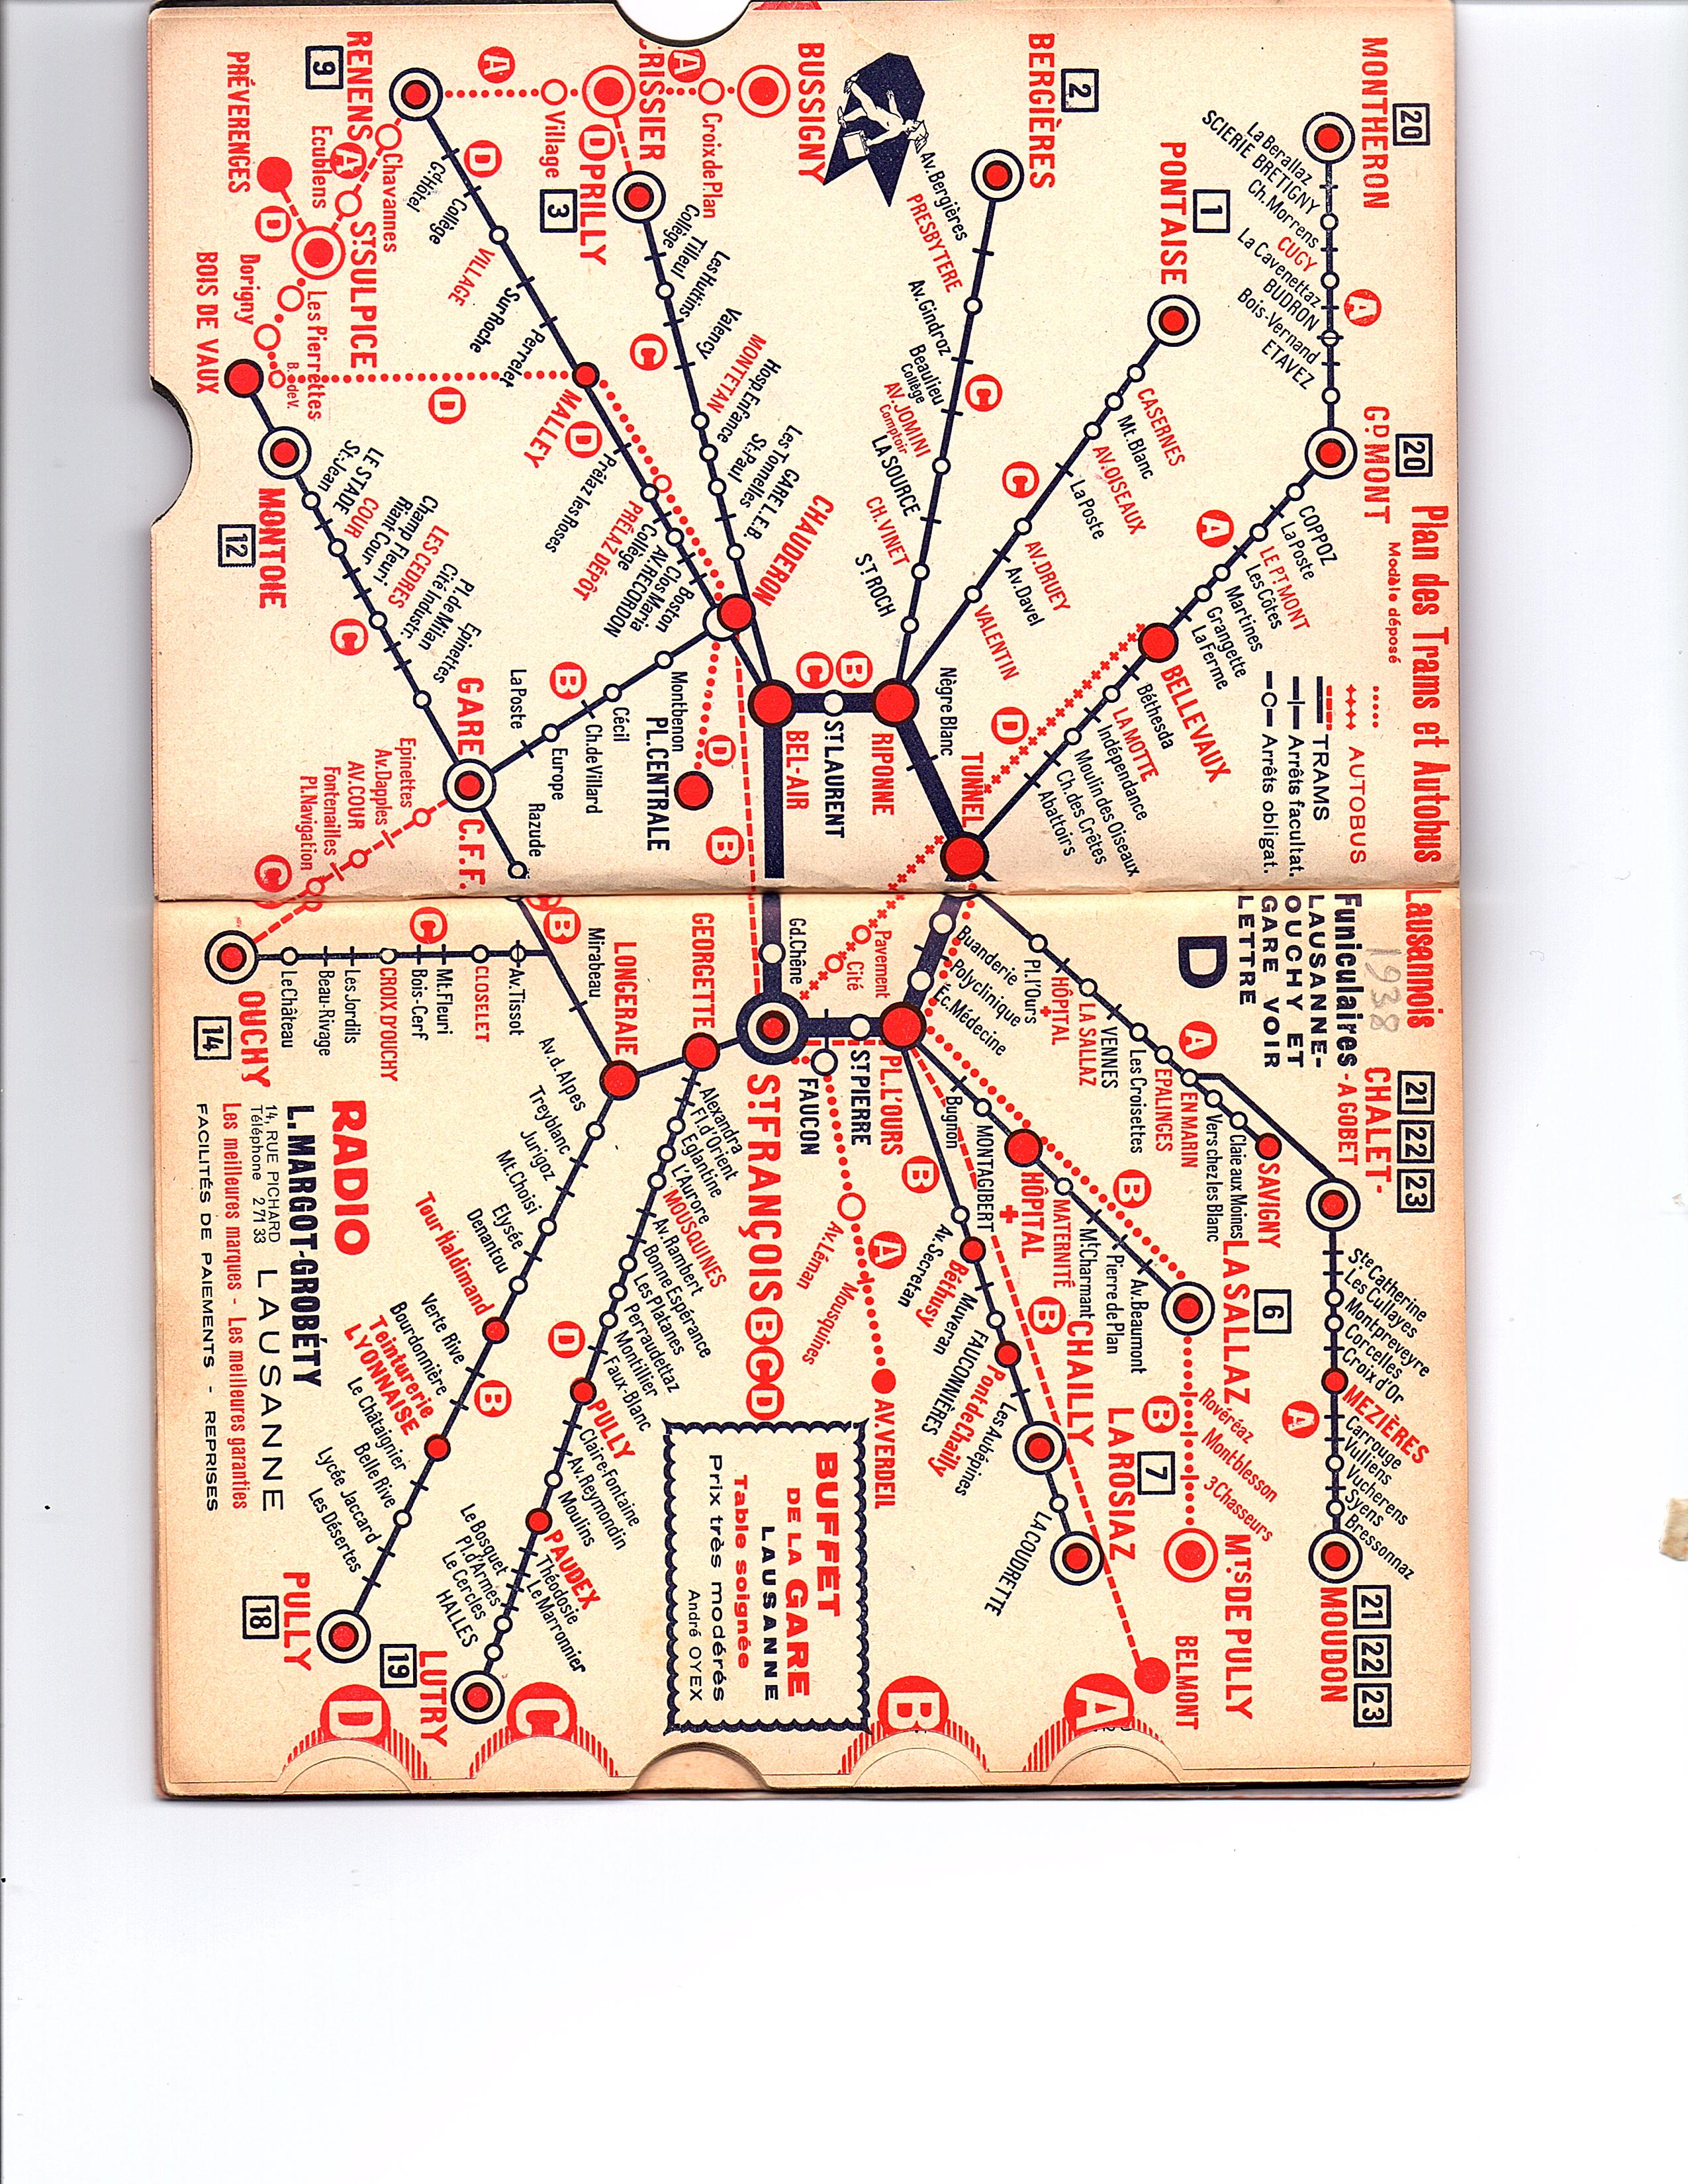 Plan des Trams et Autobus Lausannois
Modèle déposé
1938
AUTOBUS
TRAMS
Arrêts facultat.
Arrêts obligat.
Funiculaires -
LAUSANNE-
OUCHY ET
GARE VOIR
LETTRE
D
20
MONTHERON
La Berallaz
SCIERIE BRETIGNY
Ch. Morrens
CUGY
La Cavenettaz
BUDRON
Bois-Vernand
ETAVEZ
A
20
GD MONT
COPPOZ
La Poste
LE PT MONT
Les Côtes
Martines
Grangette
La Ferme
A
BELLEVAUX
Béthesda
LA MOTTE
Indépendance
Moulin des Oiseaux
Ch. des Crêtes
Abattoirs
D
TUNNEL
1
PONTAISE
CASERNES
Mt. Blanc
AV. OISEAUX
La Poste
C
AV. DRUEY
Av. Davel
VALENTIN
Nègre Blanc
RIPONNE
2
BERGIÈRES
Av. Bergières
PRESBYTERE
Av. Gindroz
Beaulieu
Collège
AV. JOMINI
Comptoir
LA SOURCE
CH. VINET
ST ROCH
C
B
C
ST LAURENT
BEL-AIR
BUSSIGNY
A
Croix de Plan
CRISSIER
Village
A
D
PRILLY
3
Collège
Tilleul
Les Huttins
Valency
MONTETAN
Hosp. Enfance
St. Paul
Les Tonnelles
GARE L.E.B.
C
CHAUDERON
9
RENENS
Cd Hôtel
Collège
VILLAGE
Sur Roche
Perrelet
D
MALLEY
D
Prélaz les Roses
PRÉLAZ DÉPÔT
Collège
AV. RECORDON
Clos Maria
Boston
Montbenon
PL. CENTRALE
D
B
Cécil
Ch. de Villard
Europe
La Poste
B
Chavannes
A
Ecublens
ST SULPICE
PRÉVERENGES
D
Les Pierrettes
Dorigny
B. de V.
D
BOIS DE VAUX
MONTOIE
12
St. Jean
LE STADE
COUR
Riant Cour
Champ Fleuri
LES CEDRES
Cité Industr.
Pl. de Milan
Epinettes
C
GARE C.F.F.
Razude
Epinettes
Av. Dapples
AV. COUR
Fontenailles
Pl. Navigation
C
B
Mirabeau
LONGERAIE
GEORGETTE
C
Av. Tissot
CLOSELET
Mt. Fleuri
Bois-Cerf
CROIX D'OUCHY
Les Jordils
Beau-Rivage
Le Château
OUCHY
14
Gd. Chêne
ST. FRANÇOIS B C D
ST PIERRE
FAUCON
PL. L'OURS
Pavement
Cité
Buanderie
Polyclinique
Éc. Médecine
Pl. l'Ours
HÔPITAL
LA SALLAZ
VENNES
Les Croisettes
EPALINGES
A
EN MARIN
Vers chez les Blanc
Claie aux Moines
SAVIGNY
21 22 23
CHALET-
A GOBET
Ste Catherine
Les Cullayes
Montpreveyre
Corcelles
Croix d'Or
MEZIÈRES
A
Carrouge
Vulliens
Vucherens
Syens
Bressonnaz
MOUDON
21 22 23
Bugnon
MONTAGIBERT
HÔPITAL
MATERNITÉ
Mt Charmant
Pierre de Plan
Av. Beaumont
B
LA SALLAZ
6
B
Rovéréaz
Montblesson
3 Chasseurs
MTS DE PULLY
B
Av. Secrétan
Béthusy
Muveran
FAUCONNIÈRES
Pont de Chailly
Les Aubépines
B
CHAILLY
LA ROSIAZ
7
LA COUDRETTE
BELMONT
Av. Léman
A
Mousquines
AV. VERDEIL
Alexandra
Fl. d'Orient
Eglantine
L'Aurore
MOUSQUINES
Av. Rambert
Bonne Espérance
Les Platanes
Perraudettaz
Montillier
Faux-Blanc
D
PULLY
Claire-Fontaine
Av. Reymondin
Moulins
PAUDEX
Théodosie
Le Marronnier
Le Bosquet
Pl. d'Armes
Le Cercles
HALLES
LUTRY
19
Av. d. Alpes
Treyblanc
Jurigoz
Mt. Choisi
Elysée
Denantou
Tour Haldimand
Verte Rive
Bourdonnière
B
Teinturerie
LYONNAISE
Le Châtaignier
Belle Rive
Lycée Jaccard
Les Désertes
PULLY
18
BUFFET
DE LA GARE
LAUSANNE
Table soignée
Prix très modérés
André OYEX
RADIO
L. MARGOT-GROBÉTY
14, RUE PICHARD
Téléphone 27133
LAUSANNE
Les meilleures marques - Les meilleures garanties
FACILITÉS DE PAIEMENTS - REPRISES
A
B
C
D